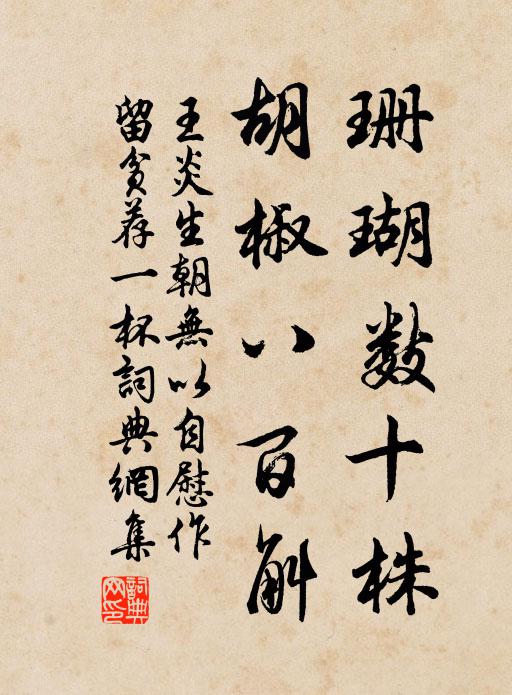 珊瑚数十株
胡椒八百斛
王炎生朝無以自慰作
留贫荐一杯詞典網集
詞典网印